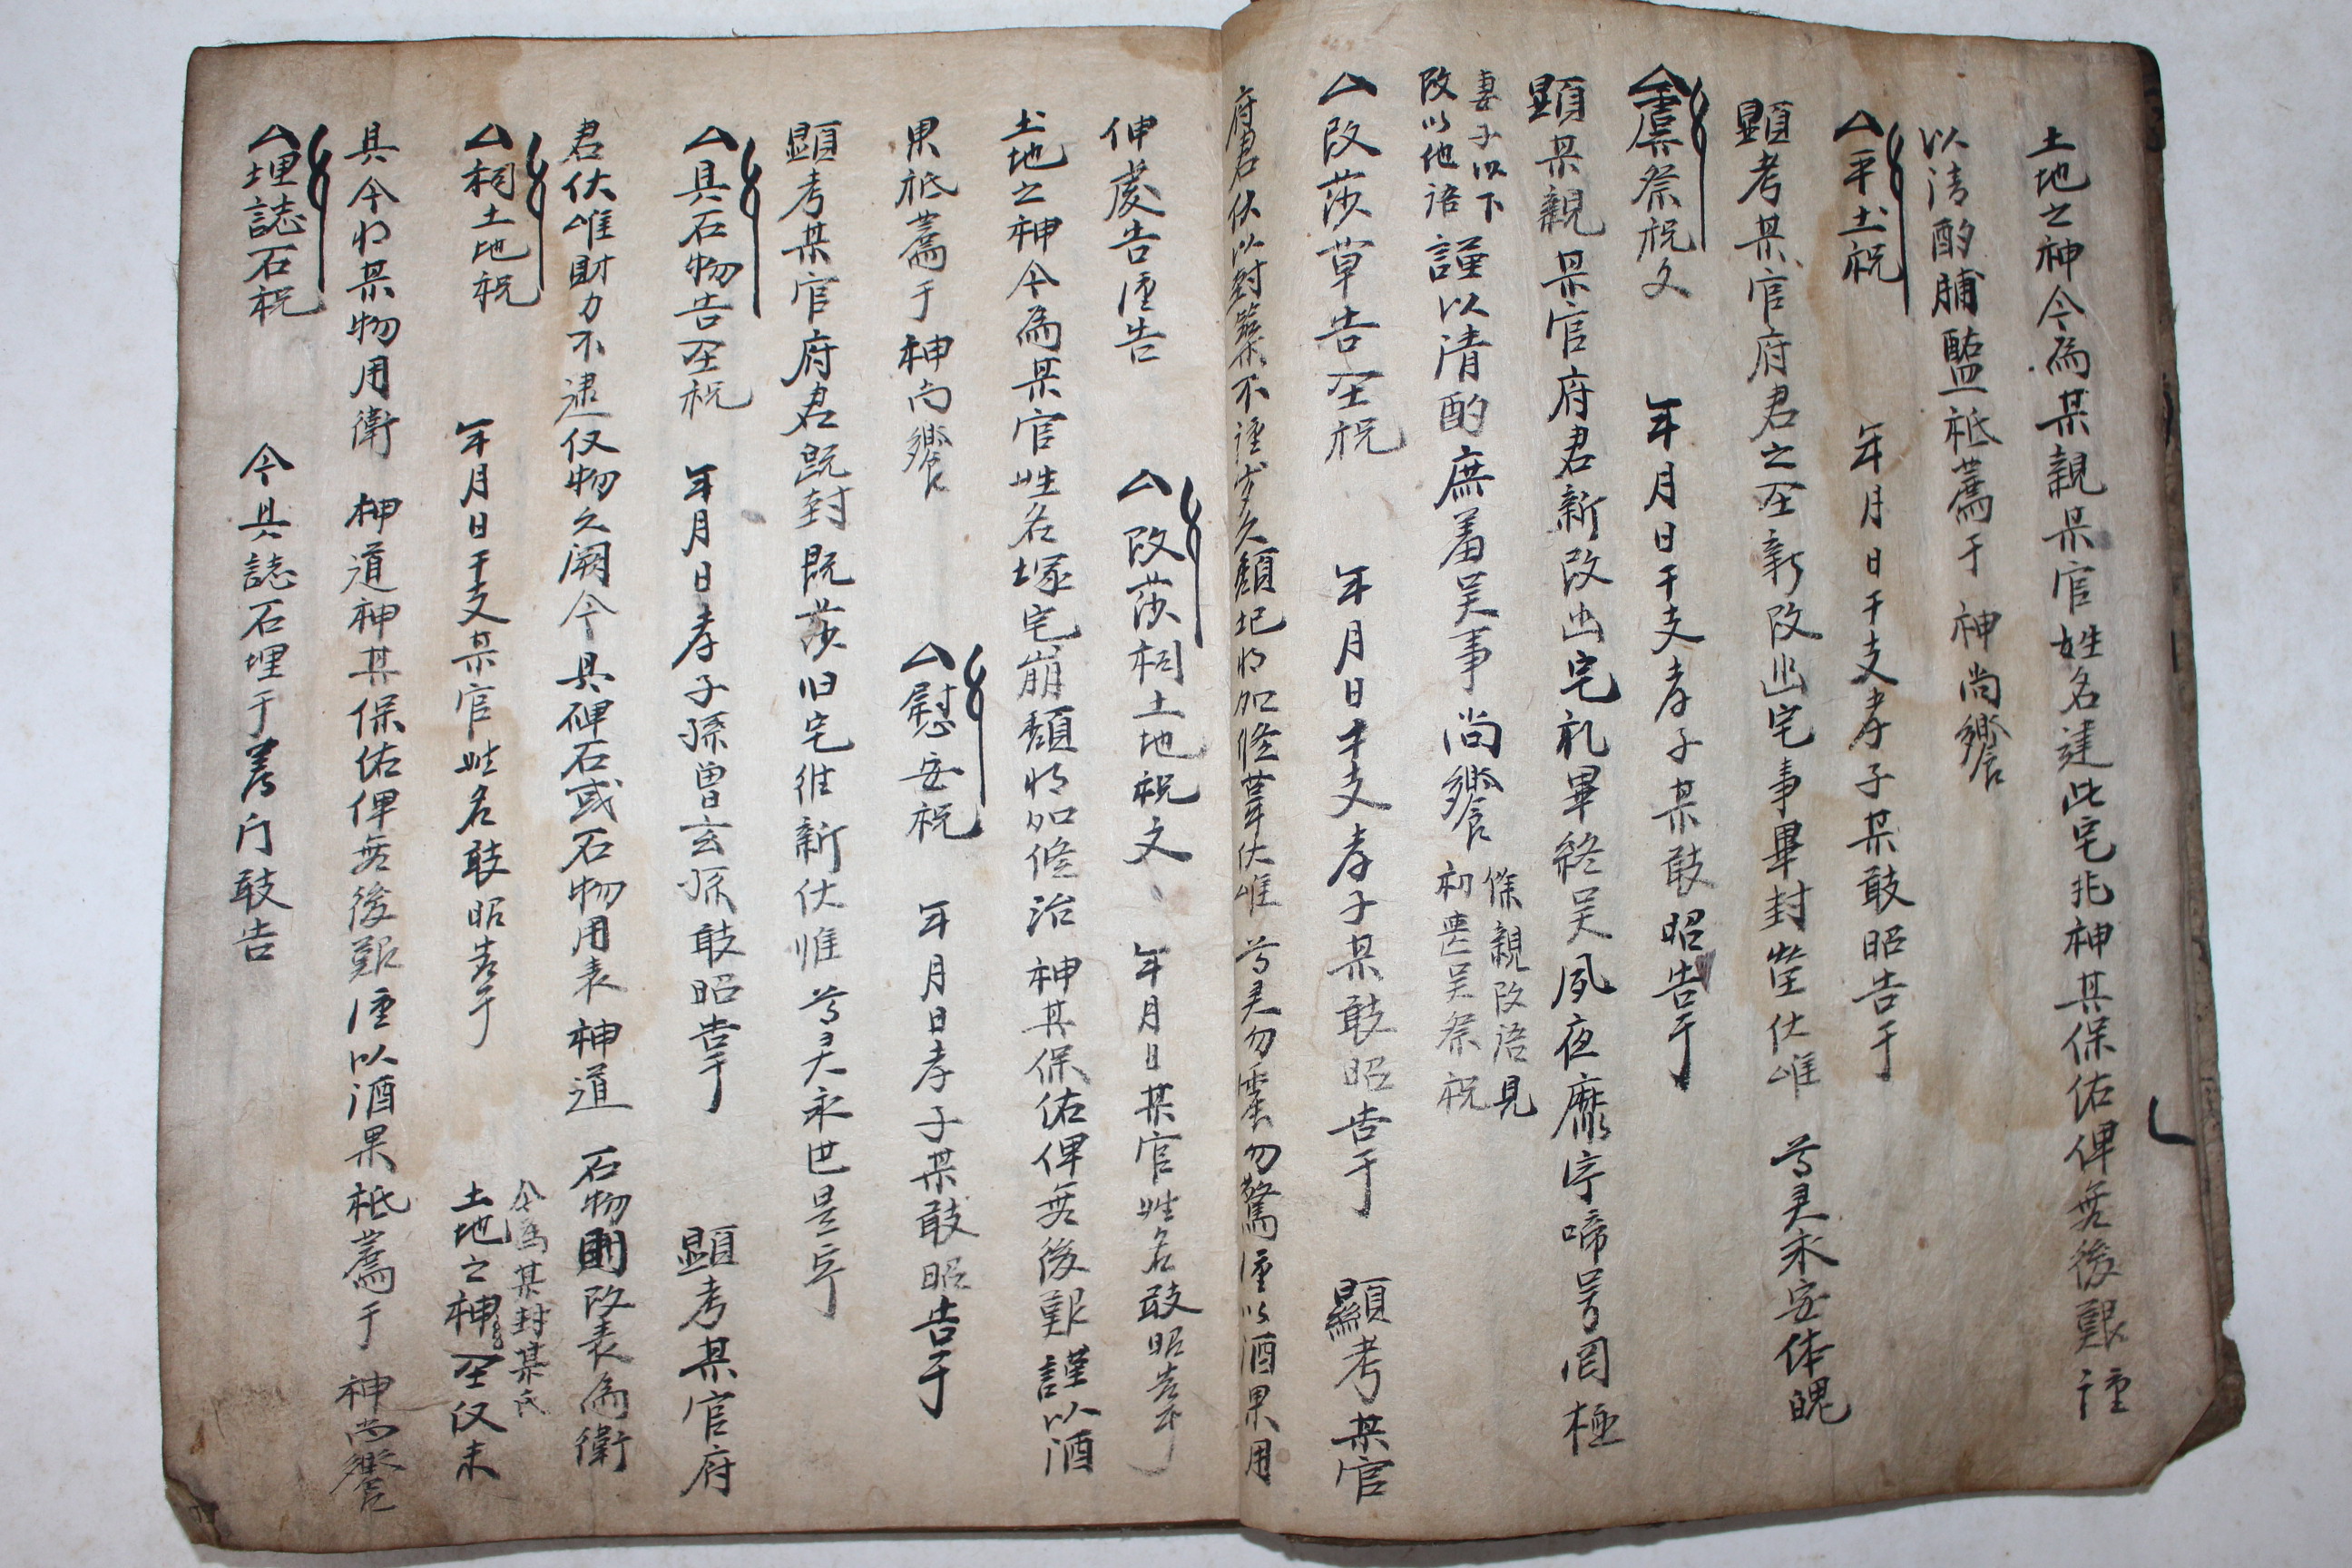 土地之神今為某親某官姓名建此宅兆神其保佑俾無後艱謹
以清酌脯醢祗薦于 神尚饗
△平土祝 年月日干支孝子某敢昭告于
顯考某官府君之墓新改幽宅事畢封瑩伏惟 尊灵永安体魄
△虞祭祝文 年月日干支孝子某敢昭告于
顯某親某官府君新改幽宅礼畢終吴夙夜靡宁啼号罔極
妻子以下
改以他語
謹以清酌庶羞吴事尚饗
余親改語見
初丧吴祭祝
△改莎草告墓祝 年月日干支孝子某敢昭告于 顯考某官
府君伏以封築不謹岁久頹圮将加修葺伏惟 尊灵勿震勿驚謹以酒果用
伸虔告謹告 △改莎祠土地祝文 年月日某官姓名敢昭告于
土地之神今為某官姓名塚宅崩頹将加修治 神其保佑俾無後艱謹以酒
果祗薦于神尚饗 △慰安祝 年月日孝子某敢昭告于
顯考某官府君既封既莎旧宅惟新伏惟 尊灵永世是宁
△具石物告墓祝 年月日孝子孫曾玄孫敢昭告于 顯考某官府
君伏惟財力不逮仪物之闕今具碑石或石物用表 神道 石物則改表為衛
△祠土地祝 年月日干支某官姓名敢昭告于 土地之神 墓仪未
今為某封某氏
具今将某物用衛 神道神其保佑俾無後艱謹以酒果祗薦于 神尚饗
△埋誌石祝 今具誌石埋于墓门敢告